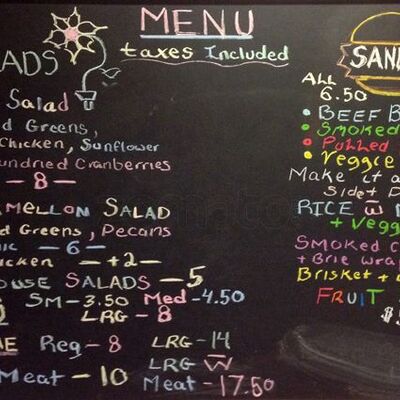 MENU
taxes Included
ADS
Salad
d Greens,
Chicken, Sunflower
undried Cranberries
- 8 -
MELLON SALAD
d Greens, Pecans
- 6 -
icken - +2 -
OUSE SALADS - 5
SM - 3.50 Med - 4.50
LRG - 8
Reg - 8 LRG - 14
LRG W
Meat - 10 Meat - 17.50
SAN
ALL
6.50
• BEEF B
• Smoked
• Pulled
• Veggie
Make it a
Side
RICE W
+ Vegg
SMOKED C
+ Brie wrap
Brisket +
FRUIT
$